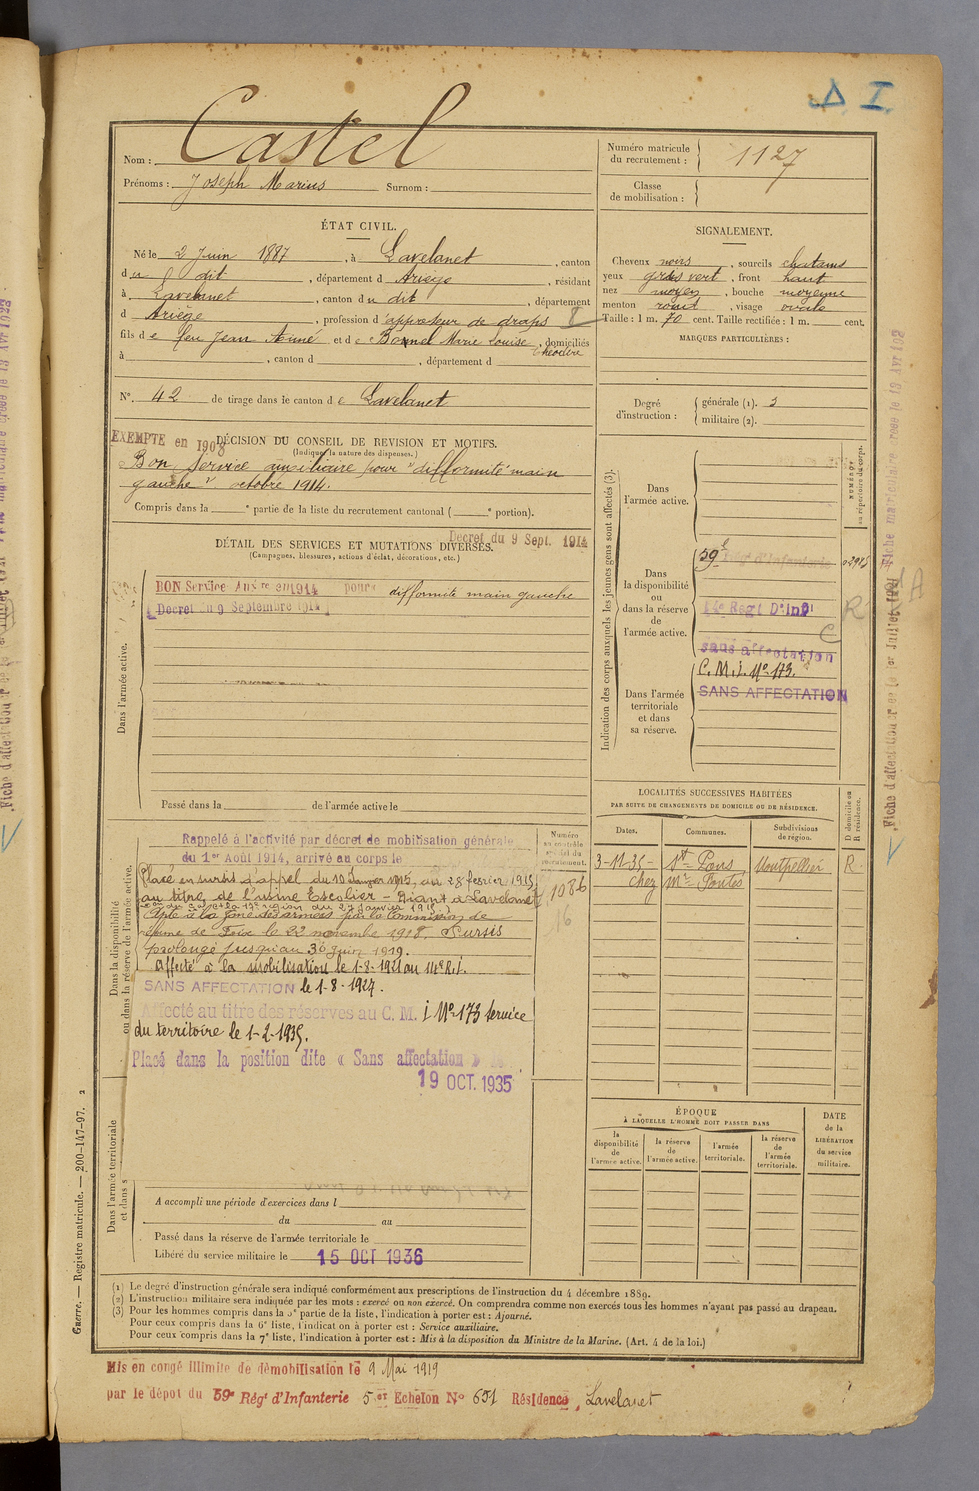 Δ I
Castel
Nom :
Prénoms : Joseph Marius Surnom :
Numéro matricule du recrutement : 1127
Classe de mobilisation :
ÉTAT CIVIL.
Né le 2 Juin 1887, à Lavelanet, canton
du dit, département d Ariège, résidant
à Lavelanet, canton du dit, département
d Ariège, profession d'appreteur de draps
fils de feu Jean Aimé et de Bonnel Marie Louise, domiciliés
Théodore
à , canton d , département d
N°. 42 de tirage dans le canton de Lavelanet
SIGNALEMENT.
Cheveux noirs, sourcils chatains
yeux gris vert, front haut
nez moyen, bouche moyenne
menton rond, visage ovale
Taille : 1 m. 70 cent. Taille rectifiée : 1 m. cent.
MARQUES PARTICULIÈRES :
Degré d'instruction :
générale (1). 3
militaire (2).
EXEMPTE en 1908
DÉCISION DU CONSEIL DE REVISION ET MOTIFS.
(Indiquer la nature des dispenses.)
Bon, Service auxiliaire pour "difformité main
gauche" octobre 1914.
Compris dans la e partie de la liste du recrutement cantonal ( e portion).
Décret du 9 Sept. 1914
DÉTAIL DES SERVICES ET MUTATIONS DIVERSES.
(Campagnes, blessures, actions d'éclat, décorations, etc.)
Dans l'armée active.
BON Service Auxre en 1914 pour difformité main gauche
Decret du 9 Septembre 1914
Passé dans la de l'armée active le
Indication des corps auxquels les jeunes gens sont affectés (3).
NUMÉROS au répertoire du corps.
Dans l'armée active.
Dans la disponibilité ou dans la réserve de l'armée active.
59e Regt d'Infanterie
14e Regt D'Inf
sans affectation
Dans l'armée territoriale et dans sa réserve.
C. M. I. No 173.
SANS AFFECTATION
R
C
LOCALITÉS SUCCESSIVES HABITÉES
PAR SUITE DE CHANGEMENTS DE DOMICILE OU DE RÉSIDENCE.
D domicile ou R résidence.
Dates. Communes. Subdivisions de région.
3-11-35 - St- Pons Montpellier R.
chez Mr. Pontes
Dans la disponibilité ou dans la réserve de l'armée active.
Numéro au contrôle spécial du recrutement.
1086
Rappelé à l'activité par décret de mobilisation générale
du 1er Août 1914, arrivé au corps le
Placé en sursis d'appel du 10 Janvier 1915, au 28 fevrier 1915
au titre de l'usine Escolier - Diant à Lavelanet
région du 27 Janvier
Apte à la zone des armées par la Commission de
réforme de Foix le 22 novembre 1918. Sursis
prolongé jusqu'au 30 Juin 1919.
Affecté à la mobilisation le 1-8-1921 au 14e R.I.
SANS AFFECTATION le 1-8-1927.
Affecté au titre des réserves au C. M. I No 173 Service
du territoire le 1-2-1935.
Placé dans la position dite « Sans affectation »
19 OCT. 1935
Dans l'armée territoriale et dans s
A accompli une période d'exercices dans l
du au
Passé dans la réserve de l'armée territoriale le
Libéré du service militaire le 15 OCT 1936
ÉPOQUE
À LAQUELLE L'HOMME DOIT PASSER DANS
la disponibilité de l'armée active.
la réserve de l'armée active.
l'armée territoriale.
la réserve de l'armée territoriale.
DATE de la LIBÉRATION du service militaire.
(1) Le degré d'instruction générale sera indiqué conformément aux prescriptions de l'instruction du 4 décembre 1889.
(2) L'instruction militaire sera indiquée par les mots : exercé ou non exercé. On comprendra comme non exercés tous les hommes n'ayant pas passé au drapeau.
(3) Pour les hommes compris dans la 5e partie de la liste, l'indication à porter est : Ajourné.
Pour ceux compris dans la 6e liste, l'indication à porter est : Service auxiliaire.
Pour ceux compris dans la 7e liste, l'indication à porter est : Mis à la disposition du Ministre de la Marine. (Art. 4 de la loi.)
Mis en congé illimité de démobilisation le 9 Mai 1919
par le dépot du 59e Régt d'Infanterie 5 er Echelon No 651 Résidence, Lavelanet
Guerre. — Registre matricule. — 200-147-97. 2